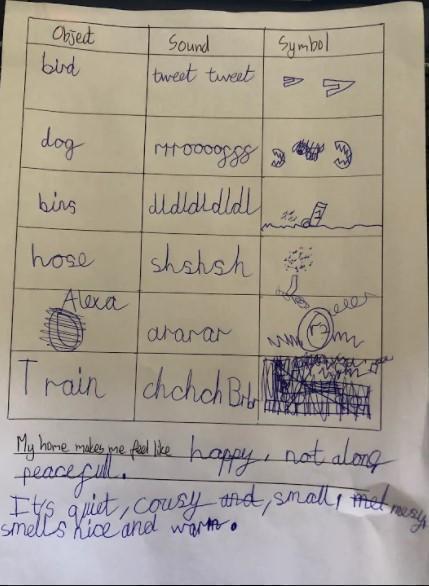 Object Sound Symbol
bird tweet tweet
dog rrroooogggg
bins dldldldldl
hose shshsh
Alexa ararar
Train chchch Brbr
My home makes me feel like happy, not along
peacefull.
It's quiet, cousy and, small, messy,
smells nice and warm.